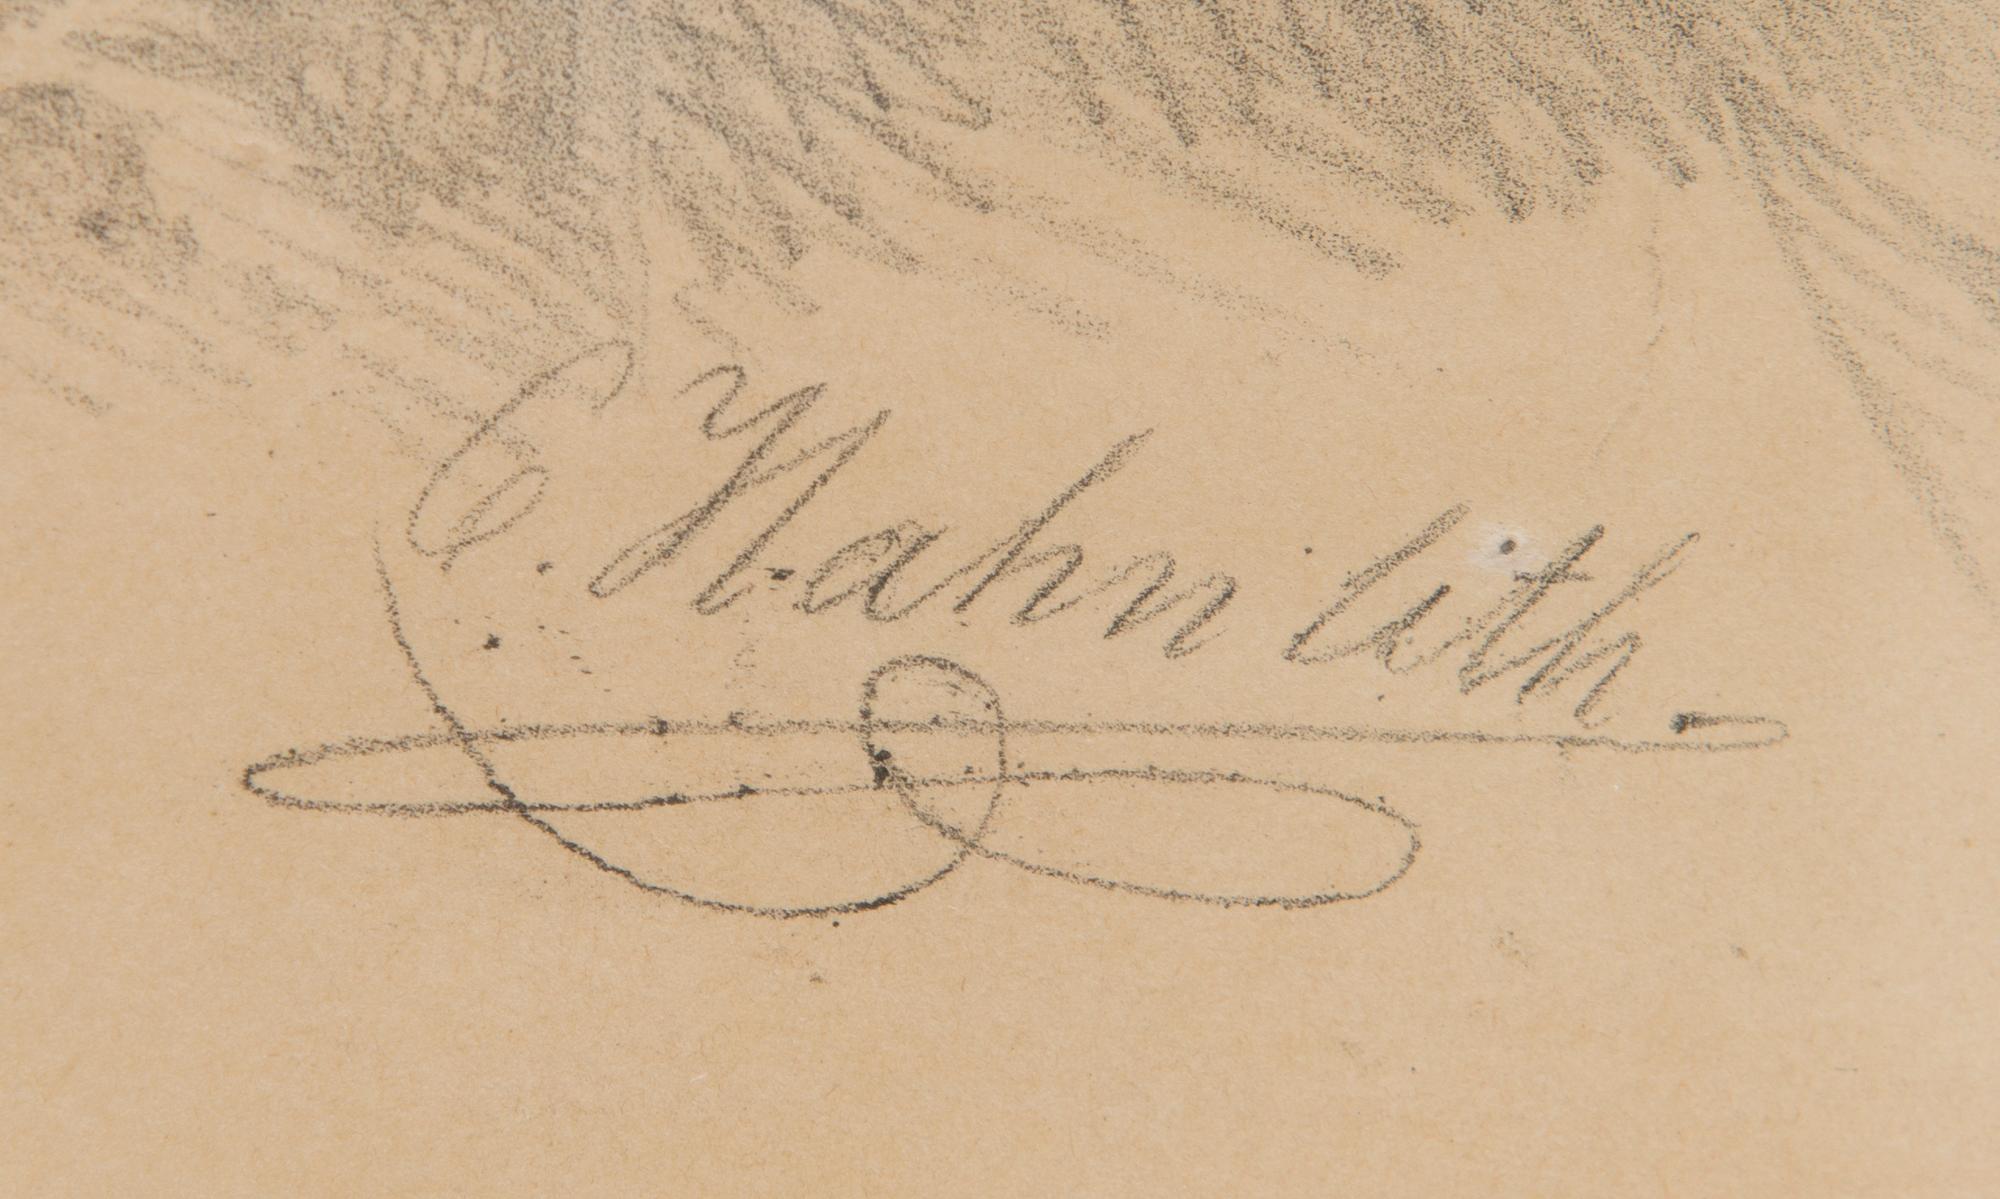 C. Hahn lith.